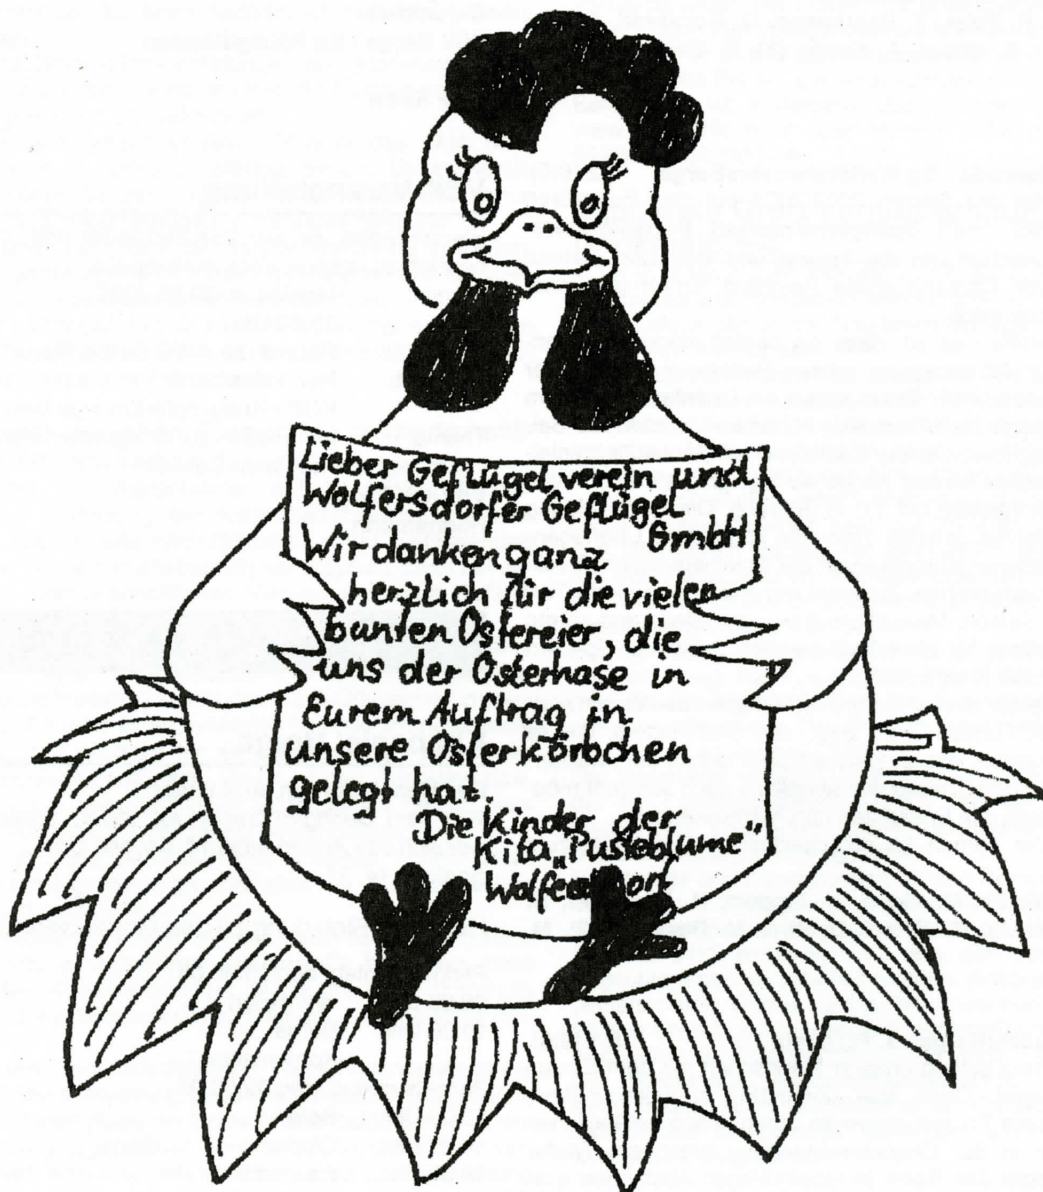 Lieber Geflügelverein und
Wolfersdorfer Geflügel
GmbH
Wir danken ganz
herzlich für die vielen
bunten Ostereier, die
uns der Osterhase in
Eurem Auftrag in
unsere Osterkörbchen
gelegt hat.
Die Kinder der
Kita „Pusteblume“